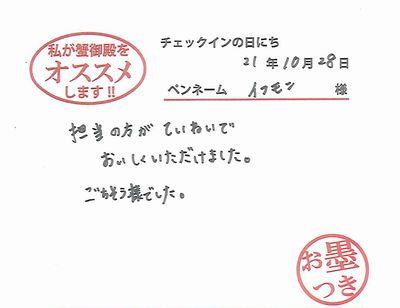 私が蟹御殿を
オススメ
します!!
チェックインの日にち
21年10月28日
ペンネーム イワモン 様
担当の方がていねいで
おいしくいただけました。
ごちそう様でした。
お墨
つき